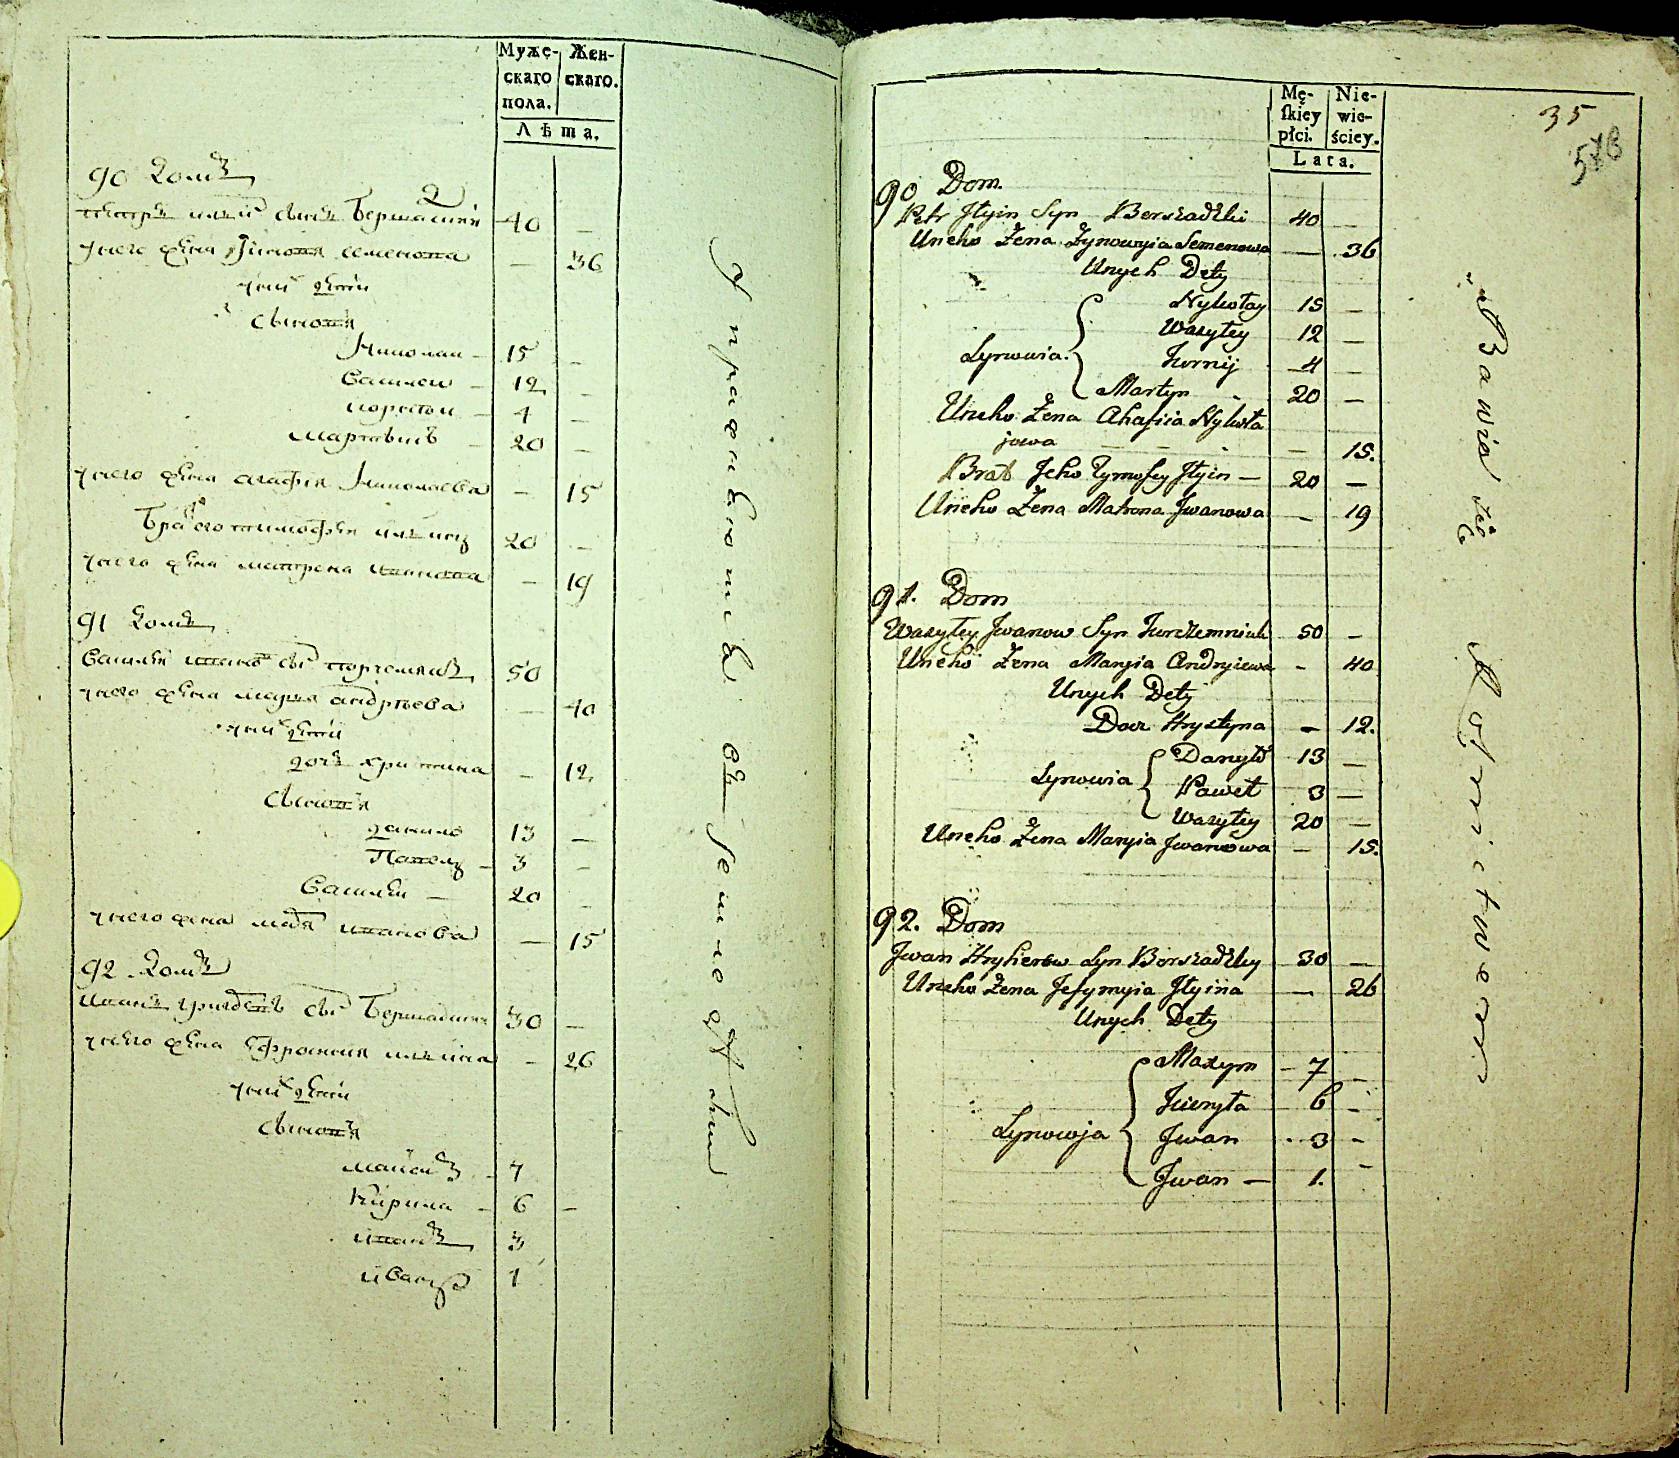 Мужескаго пола. Женскаго.
Лѣта.
90 Домъ
Петръ Илїи Сынъ Бершадскїй 40 —
у него жена Зиновїя Семенова — 36
у нихъ дѣти
Сыновя
Николаи — 15 —
Василеи — 12 —
4 —
Мартынъ — 20 —
у него жена агафїя Николаева — 15
братъ его тимофѣи Илїинъ 20 —
у него жена матрена Иванова — 19
91 Домъ
Василїи Ивановъ Сынъ 50 —
у него жена марїя андрѣева — 40
у нихъ дѣти
дочь христина — 12
Сыновя
данило 13 —
Павелъ — 3 —
Василїи — 20 —
у него жена марїя Иванова — 15
92 Домъ
Иванъ григоревъ Сынъ Бершадскїй 30 —
у него жена Ефросинїя Илїина — 26
у нихъ дѣти
Сыновя
маѯимъ — 7
Кирила — 6 —
Иванъ 3
Иванъ 1
Упражняются въ земледѣлїи
Mę-skiey płci. Nie-wie-ściey.
Lata.
35
90 Dom
Petr Jłyin Syn Berszadzki 40 —
Uneho Żena Zynowyia Semenowa — 36
Unych Dety
Nykołay 15 —
Wasyley 12 —
Synowia. Kornij 4 —
Martyn 20 —
Uneho Żena Ahafiia Nykoła
jowa — 15.
Brat Jeho Tymofey Jłyin — 20 —
Uneho Żena Matrona Jwanowa — 19
91. Dom
Wasyley Jwanow Syn Kurczemniuk 50 —
Uneho Żena Maryia Andryiewa — 40
Unych Dety
Docz Hrystyna — 12.
Danyło 13 —
Synowia Paweł 3 —
Wasyley 20 —
Uneho Żena Maryia Jwanowa — 15.
92. Dom
Jwan Hryhorow Syn Borszadzky 30 —
Uneho Żena Jefymyia Jłyina — 26
Unych Dety
Maxym — 7 —
Kieryła 6 —
Synowja Jwan 3 —
Jwan — 1. —
Bawią się Rolnictwem